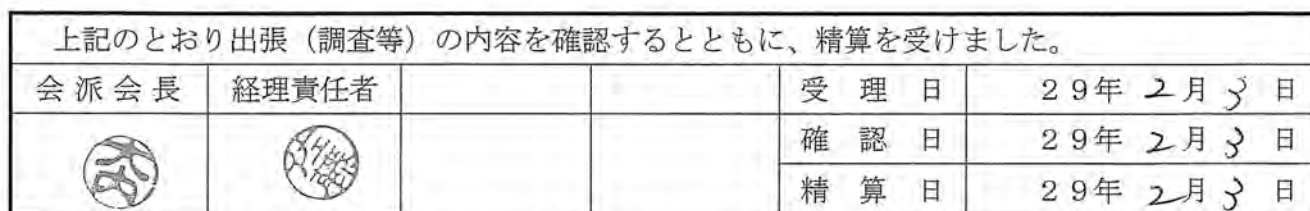 上記のとおり出張（調査等）の内容を確認するとともに、精算を受けました。
会派会長 経理責任者 受理日 29年2月3日
確認日 29年2月3日
精算日 29年2月3日